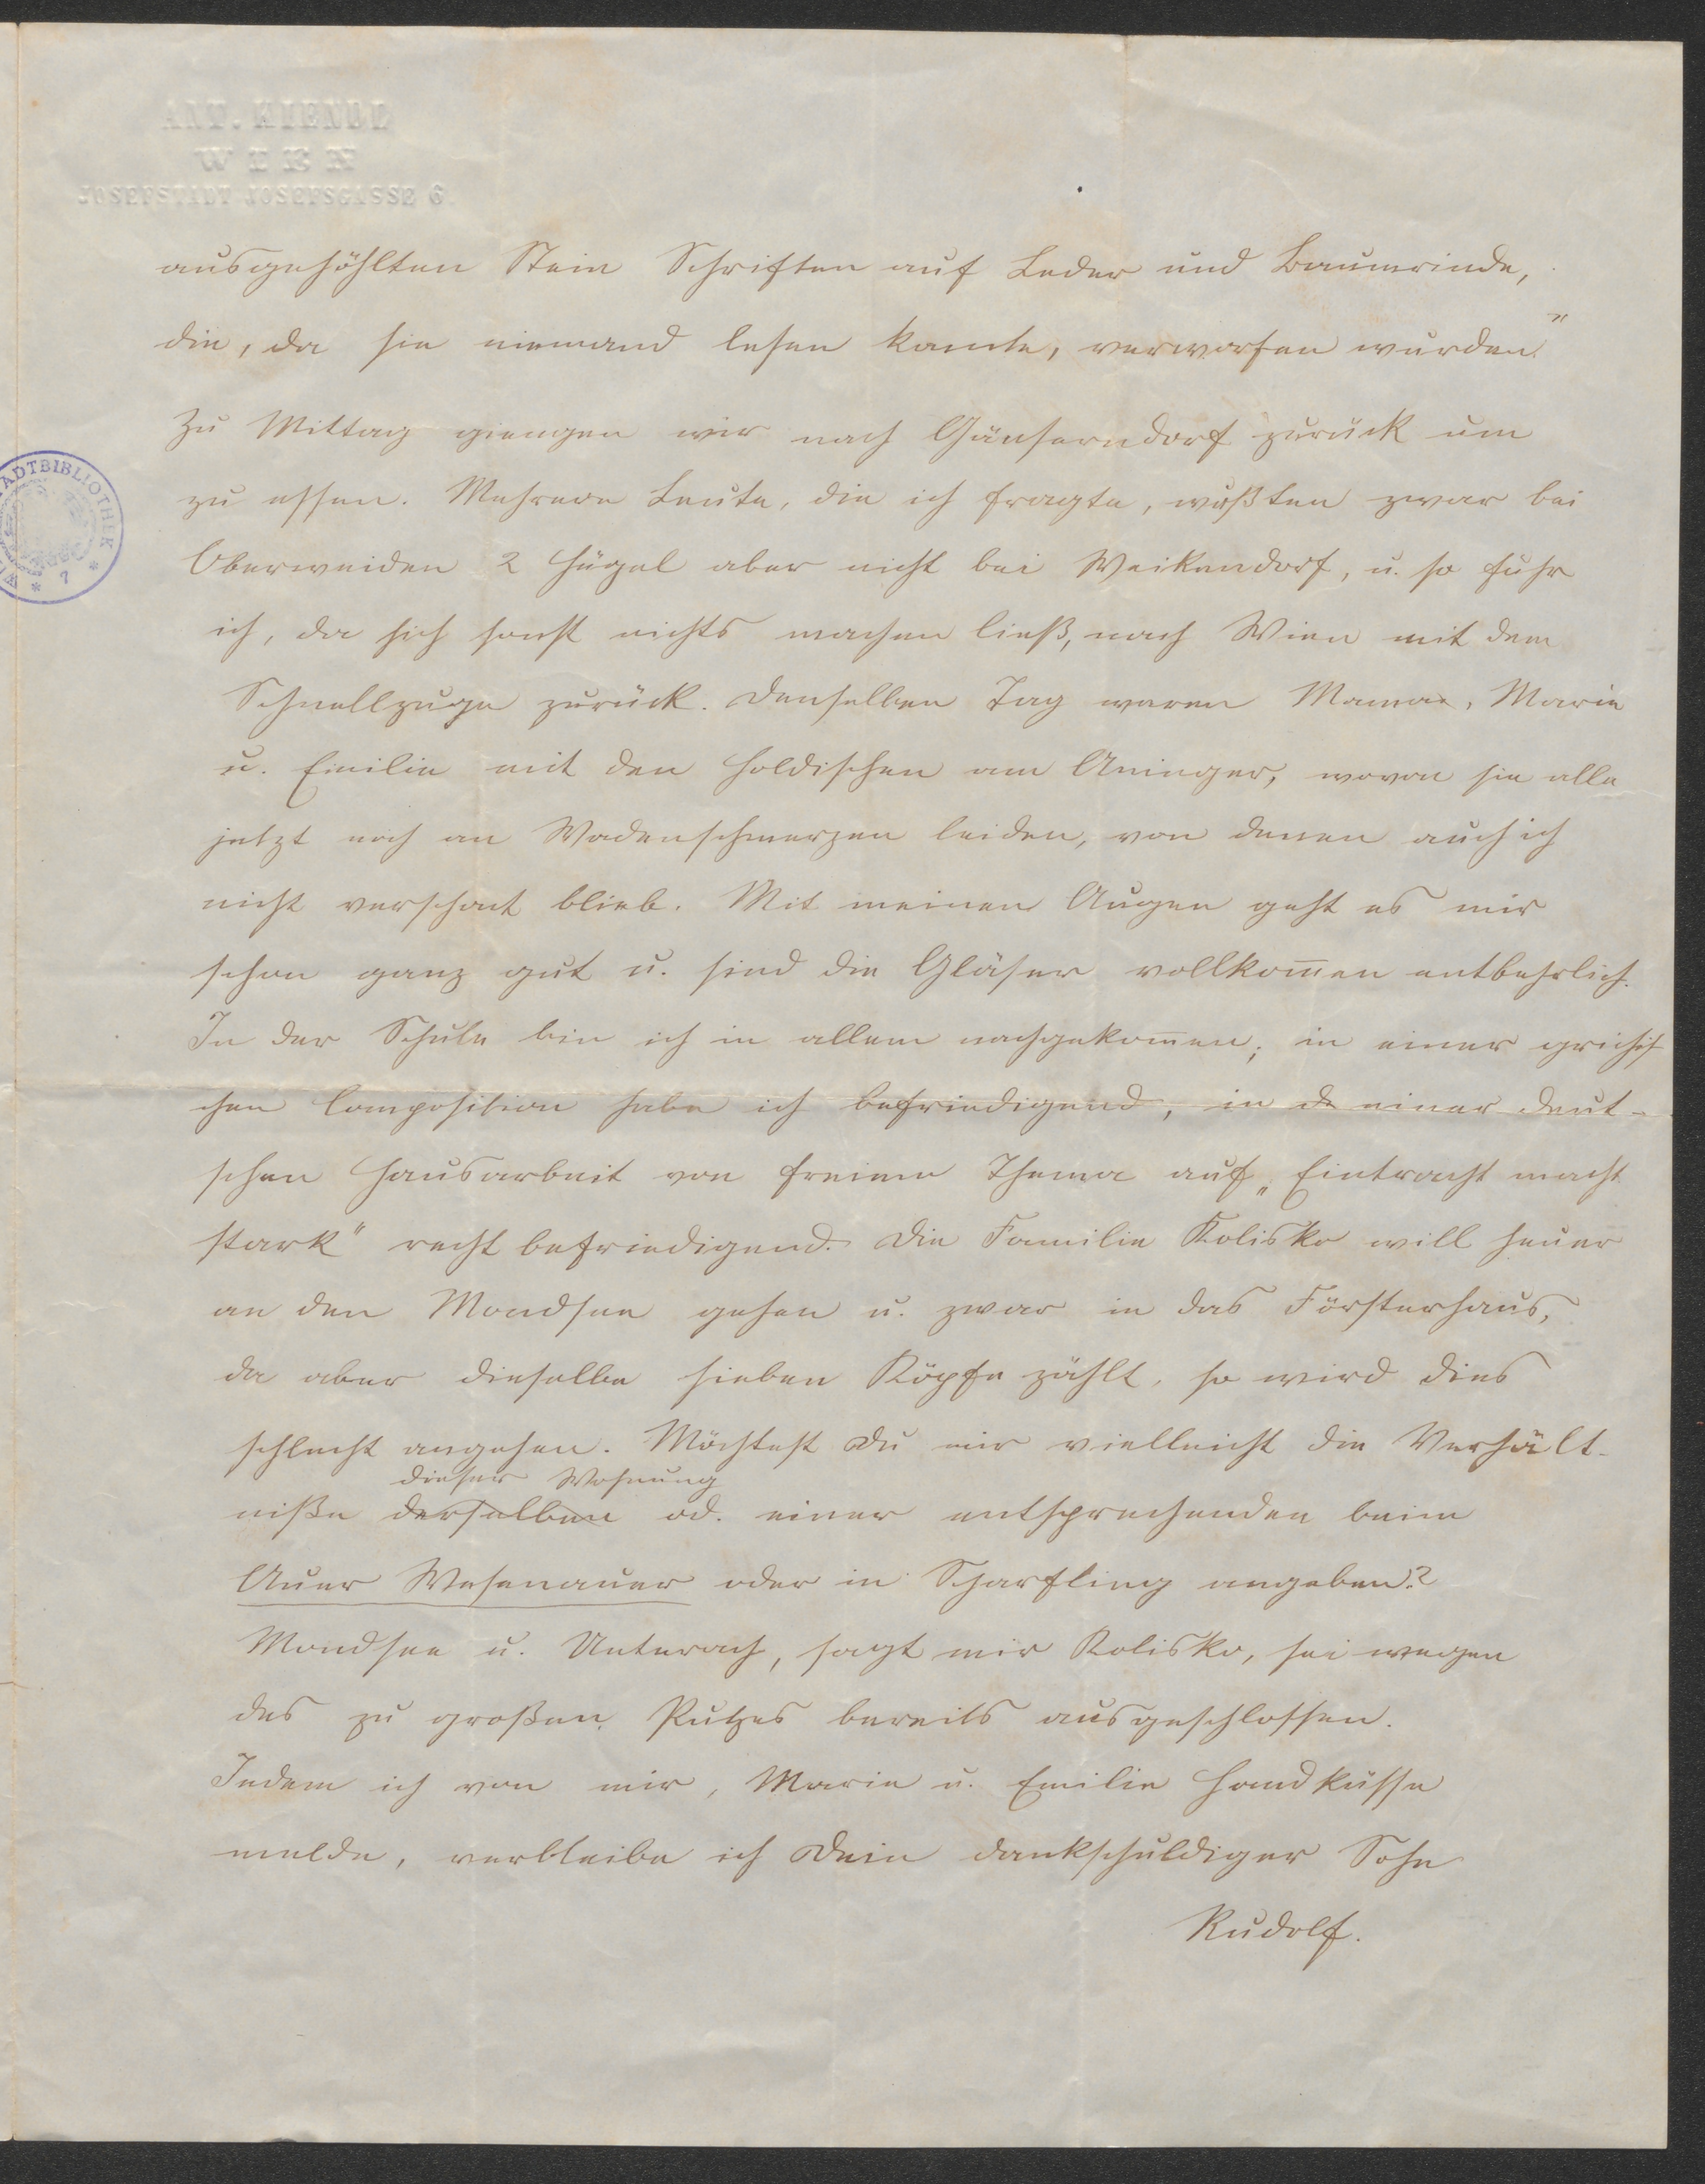 ANT. KIENDL
WIEN
JOSEFSTADT JOSEFSGASSE 6
ausgehöhlten Stein Schriften auf Leder und Baumrinde,
die, da sie niemand lesen konnte, verworfen wurden."
Zu Mittag giengen wir nach Gänserndorf zurück um
ADTBIBLIOTHEK
zu essen. Mehrere Leute, die ich fragte, wußten zwar bei
Oberweiden 2 Hügel aber nicht bei Weikendorf, u. so fuhr
ich, da sich sonst nichts machen ließ, nach Wien mit dem
Schnellzuge zurück. Denselben Tag waren Mama, Marie
u. Emilie mit den Holdischen am Aninger, wovon sie alle
jetzt noch an Wadenschmerzen leiden, von denen auch ich
nicht verschont blieb. Mit meinen Augen geht es mir
schon ganz gut u. sind die Gläser vollkom̅en entbehrlich.
In der Schule bin ich in allem nachgekom̅en; in einer grichis
chen Composition habe ich befriedigend, in de einer deut-
schen Hausarbeit von freiem Thema auf „Eintracht macht
stark" recht befriedigend. Die Familie Kolisko will heuer
an den Mondsee gehen u. zwar in das Försterhaus,
da aber dieselbe sieben Köpfe zählt, so wird dies
schlecht angehen. Möchtest Du mir vielleicht die Verhält-
dieser Wohnung
niße derselben od. einer entsprechenden beim
Auer Wesenauer oder in Scharfling angeben?
Mondsee u. Unterach, sagt mir Kolisko, sei wegen
des zu großen Putzes bereits ausgeschlossen.
Indem ich von mir, Marie u. Emilie Handküsse
melde, verbleibe ich Dein dankschuldiger Sohn
Rudolf.